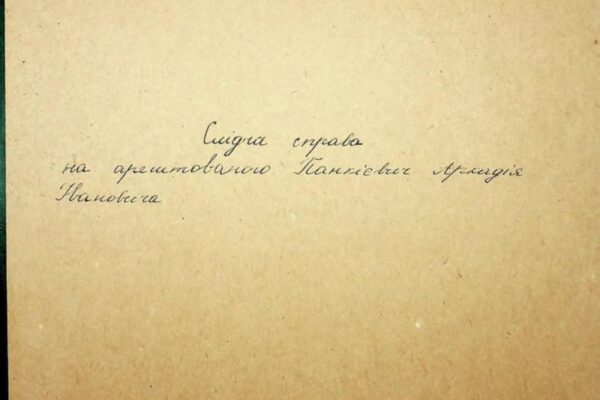 Слідча справа
на арештованого Панкієвич Аркадія
Івановича